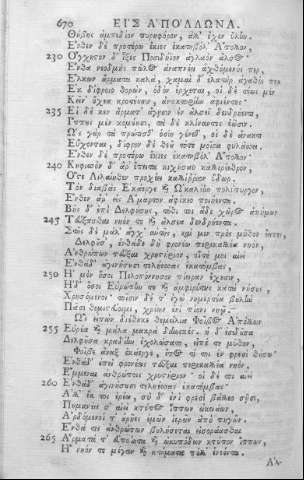 670 ΕΙΣ ΑΠΟΛΛΩΝΑ.
Θήβης ἀμπεδίον πυρηφόρον, ἀλλ' ἔχεν ὕλην.
Ἔνθεν δὲ προτέρω ἔκιες ἑκατηβόλ' Ἄπολλον,
230 Ὀγχηστὸν δ' ἷξες Ποσιδήϊον ἀγλαὸν ἄλσος·
Ἔνθα νεοδμὴς πῶλος ἀναπνέει ἀχθόμενός περ,
Ἕλκων ἅρματα καλὰ, χαμαὶ δ' ἐλατὴρ ἀγαθός περ
Ἐκ δίφροιο θορὼν, ὁδὸν ἔρχεται, οἱ δὲ τέως μὲν
Κείν' ὄχεα κροτέουσιν, ἀνακτορίην ἀφιέντες·
235 Εἰ δέ κεν ἅρματ' ἀγῇσιν ἐν ἄλσεϊ δενδρήεντι,
Ἵππους μὲν κομέουσι, τὰ δὲ κλίναντες ἐῶσιν·
Ὣς γὰρ τὰ πρώτισθ' ὁσίη γένεθ', οἱ δὲ ἄνακτι
Εὔχονται, δίφρον δὲ θεοῦ τότε μοῖρα φυλάσσει.
Ἔνθεν δὲ προτέρω ἔκιες ἑκατηβόλ' Ἄπολλον·
240 Κηφισσὸν δ' ἄρ' ἔπειτα κιχήσαο καλλιρέεθρον,
Ὅστε Λιλαίηθεν προχέει καλλίρροον ὕδωρ.
Τὸν διαβὰς Ἑκάεργε καὶ Ὠκαλέην πολύπυργον,
Ἔνθεν ἄρ' εἰς Ἁλίαρτον ἀφίκεο ποιήεντα.
Βῆς δ' ἐπὶ Δελφούσης, τόθι τοι ἅδε χῶρος ἀπήμων
245 Τεύξασθαι νηόν τε καὶ ἄλσεα δενδρήεντα.
Στῆς δὲ μάλ' ἄγχ' αὐτῆς, καί μιν πρὸς μῦθον ἔειπες·
Δελφοῦσ', ἐνθάδε δὴ φρονέω περικαλλέα νηὸν,
Ἀνθρώπων τεῦξαι χρηστήριον, οἵτε μοι αἰεὶ
Ἐνθάδ' ἀγινήσουσι τεληέσσας ἑκατόμβας,
250 Ἠ μὲν ὅσοι Πελοπόννησον πίειραν ἔχουσιν,
Ἠδ' ὅσοι Εὐρώπην τε καὶ ἀμφιρύτας κατὰ νήσους,
Χρησόμενοι· τοῖσιν δέ τ' ἐγὼ νημερτέα βουλὴν
Πᾶσι θεμιστεύοιμι, χρέων ἐνὶ πίονι νηῷ.
Ὣς εἰπὼν διέθηκε θεμείλια Φοῖβος Ἀπόλλων
255 Εὐρέα καὶ μάλα μακρὰ διαμπερές· ἡ δ' ἐσιδοῦσα
Δελφοῦσα κραδίην ἐχολώσατο, εἶπέ τε μῦθον,
Φοῖβε ἄναξ ἑκάεργε, ἔπος τί τοι ἐν φρεσὶ θήσω·
Ἐνθάδ' ἐπεὶ φρονέεις τεῦξαι περικαλλέα νηὸν,
Ἔμμεναι ἀνθρώποις χρηστήριον· οἱ δέ τοι αἰεὶ
260 Ἐνθάδ' ἀγινήσουσι τεληέσσας ἑκατόμβας·
Ἀλλ' ἔκ τοι ἐρέω, σὺ δ' ἐνὶ φρεσὶ βάλλεο σῇσι,
Πημανέει σ' αἰεὶ κτύπος ἵππων ὠκειάων,
Ἀρδόμενοί τ' οὐρῆες ἐμῶν ἱερῶν ἀπὸ πηγέων·
Ἔνθά τις ἀνθρώπων βουλήσεται εἰσοράασθαι
265 Ἅρματά τ' εὐποίητα καὶ ὠκυπόδων κτύπον ἵππων,
Ἢ νηόν τε μέγαν καὶ κτήματα πόλλ' ἐνεόντα.
Ἀλ-